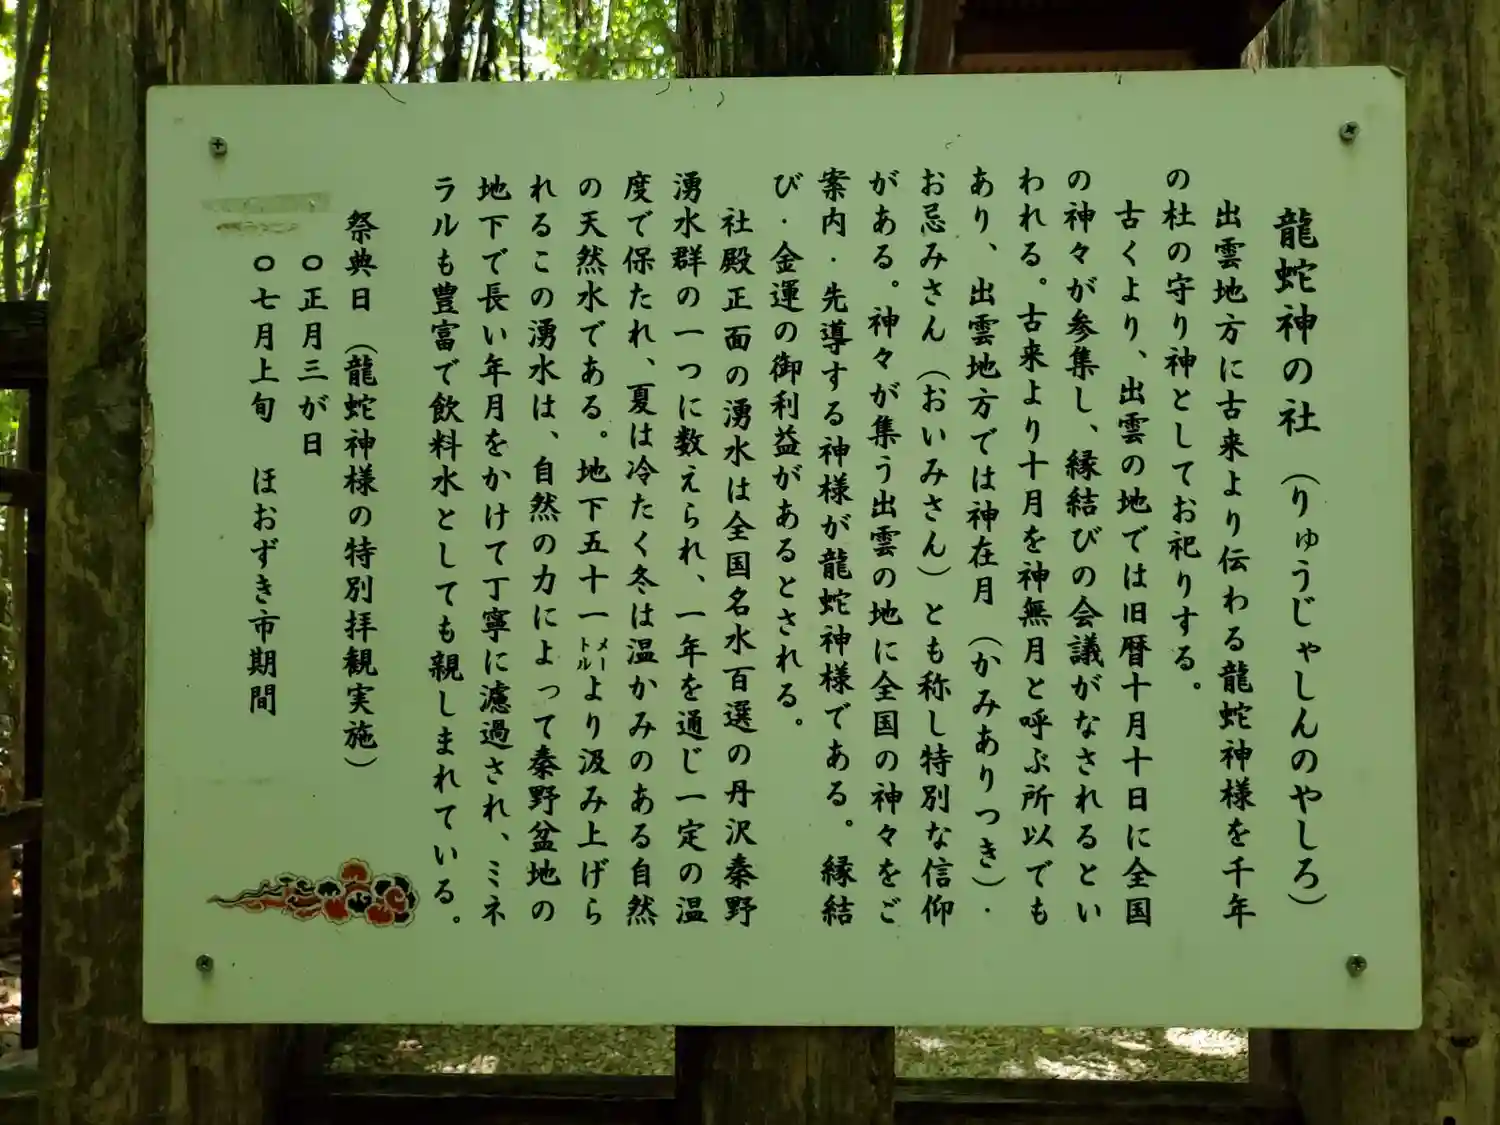 龍蛇神の社（りゅうじゃしんのやしろ）
出雲地方に古来より伝わる龍蛇神様を千年
の杜の守り神としてお祀りする。
古くより、出雲の地では旧暦十月十日に全国
の神々が参集し、縁結びの会議がなされるとい
われる。古来より十月を神無月と呼ぶ所以でも
あり、出雲地方では神在月（かみありつき）・
お忌みさん（おいみさん）とも称し特別な信仰
がある。神々が集う出雲の地に全国の神々をご
案内・先導する神様が龍蛇神様である。縁結
び・金運の御利益があるとされる。
社殿正面の湧水は全国名水百選の丹沢秦野
湧水群の一つに数えられ、一年を通じ一定の温
度で保たれ、夏は冷たく冬は温かみのある自然
の天然水である。地下五十一メートルより汲み上げら
れるこの湧水は、自然の力によって秦野盆地の
地下で長い年月をかけて丁寧に濾過され、ミネ
ラルも豊富で飲料水としても親しまれている。
祭典日（龍蛇神様の特別拝観実施）
〇正月三が日
〇七月上旬　ほおずき市期間